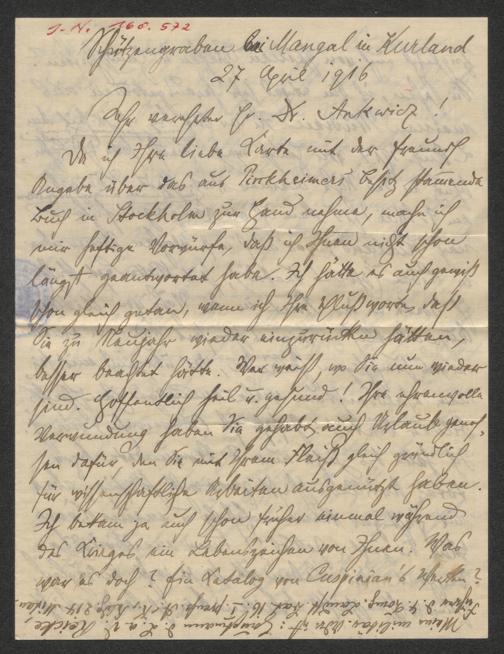 I.-N. 166.572
Schützengraben bei Mangal in Kurland
27 April 1916
Sehr verehrter Hr. Dr. Ankwicz!
Da ich Ihre liebe Karte mit der freundl
Angabe über das aus Pirkheimers Besitz stammende
Buch in Stockholm zur Hand nehme, mache ich
mir heftige Vorwürfe, daß ich Ihnen nicht schon
längst geantwortet habe. Ich hätte es auch gewiß
schon gleich getan, wenn ich Ihre Schlußworte, daß
Sie zu Neujahr wieder einzurücken hätten,
besser beachtet hätte. Wer weiß, wo Sie nun wieder
sind. Hoffentlich heil u. gesund! Ihre ehrenvolle
Verwundung haben Sie gehabt, auch Urlaub genos-
sen dafür, den Sie mit Ihrem Fleiß gleich gründlich
für wissenschaftliche Arbeiten ausgenützt haben.
Ich bekam ja auch schon früher einmal während
des Krieges ein Lebenszeichen von Ihnen. Was
war es doch? Ein Katalog von Cuspinian's
Meine militär. Adr. ist: Hauptmann d. L. a. D. Reicke,